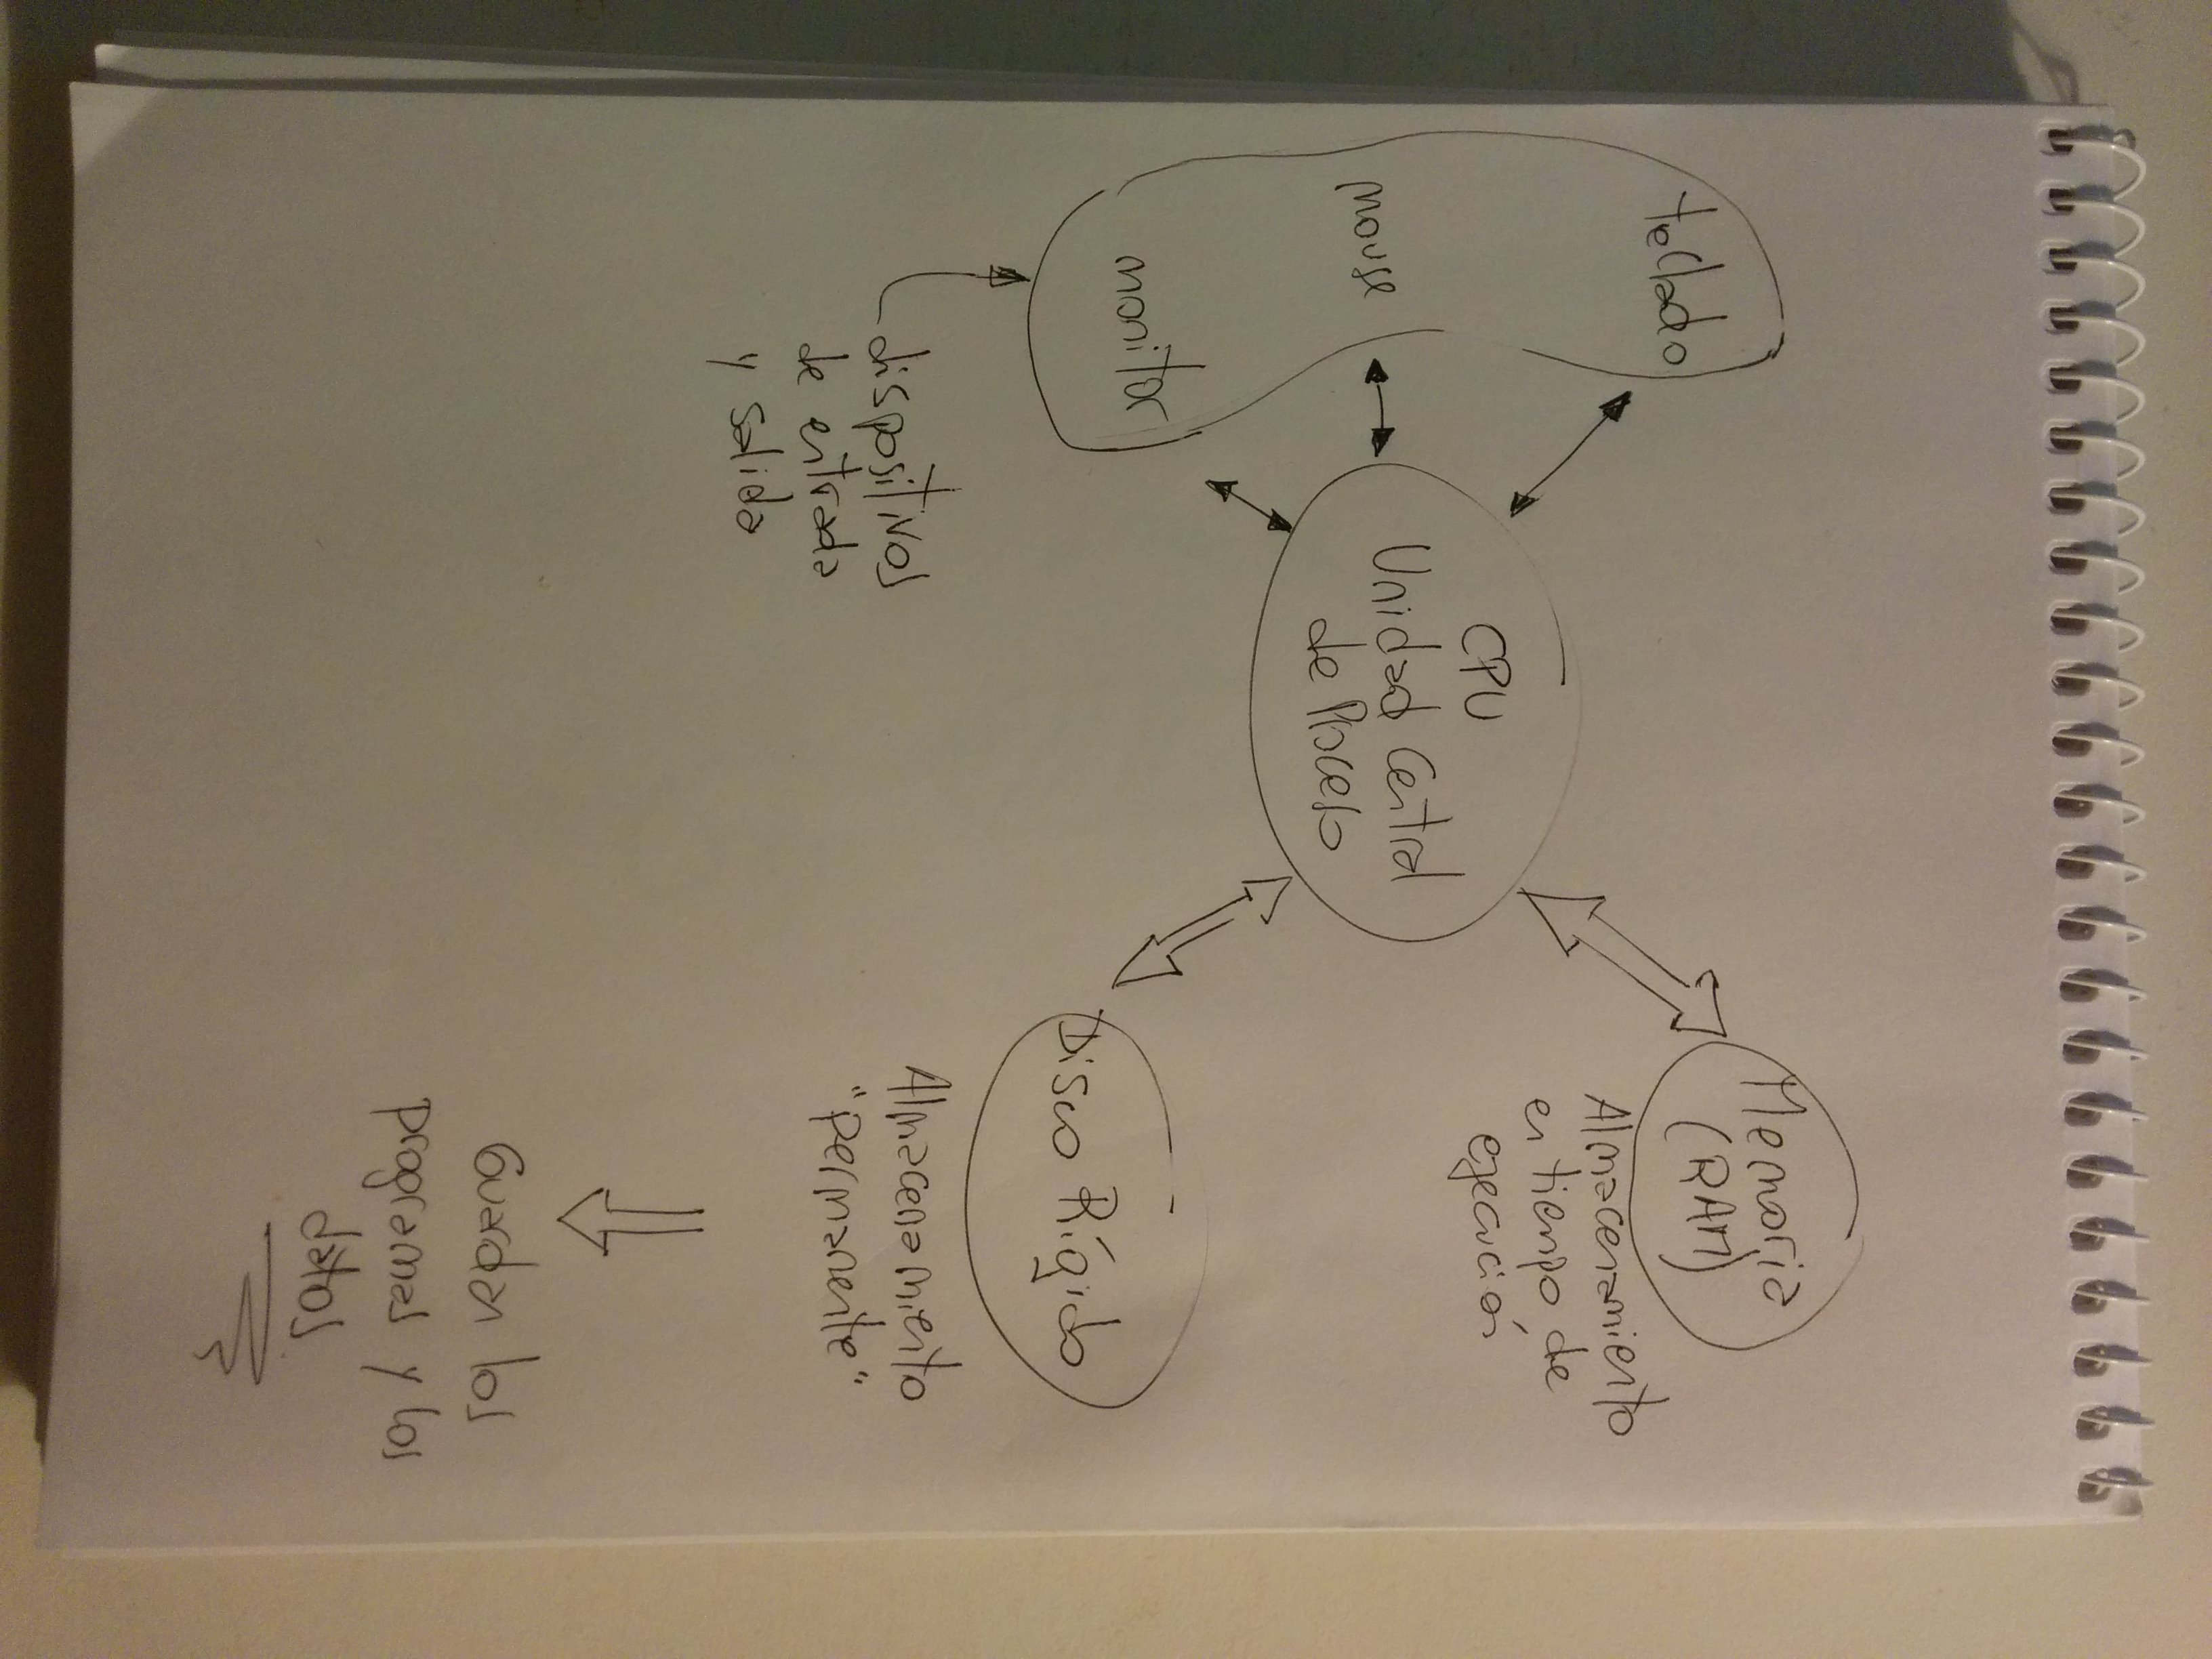 teclado
mouse
monitor
dispositivos
de entrada
y salida
CPU
Unidad Central
de Proceso
Memoria
(RAM)
Almacenamiento
en tiempo de
ejecución
Disco Rígido
Almacenamiento
"permanente"
Guardar los
programas y los
datos